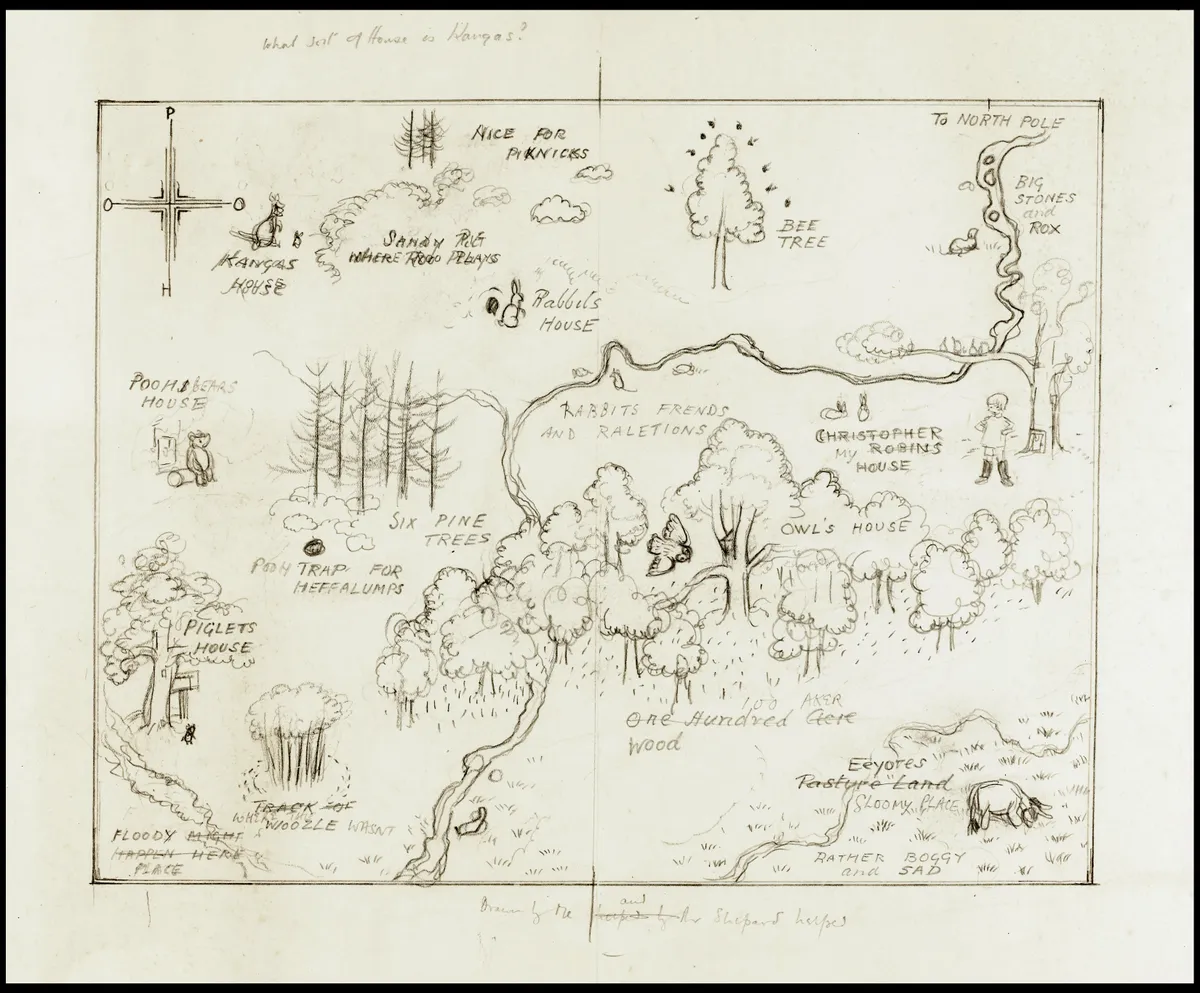 What sort of House is Kangas?
P
O
O
H
NICE FOR
PIKNICKS
To NORTH POLE
BIG
STONES
and
ROX
BEE
TREE
KANGAS
HOUSE
SANDY PIT
WHERE ROO PLAYS
Rabbits
HOUSE
POOH BEARS
HOUSE
RABBITS FRENDS
AND RALETIONS
CHRISTOPHER
MY ROBINS
HOUSE
SIX PINE
TREES
OWL'S HOUSE
POOH TRAP FOR
HEFFALUMPS
PIGLETS
HOUSE
100 AKER
One Hundred Acre
Wood
Eeyores
Pasture Land
GLOOMY PLACE
TRACK OF
WHERE THE
WOOZLE WASNT
FLOODY MIGHT
HAPPEN HERE
PLACE
RATHER BOGGY
and SAD
and
Drawn by Me helped by Mr Shepard helped